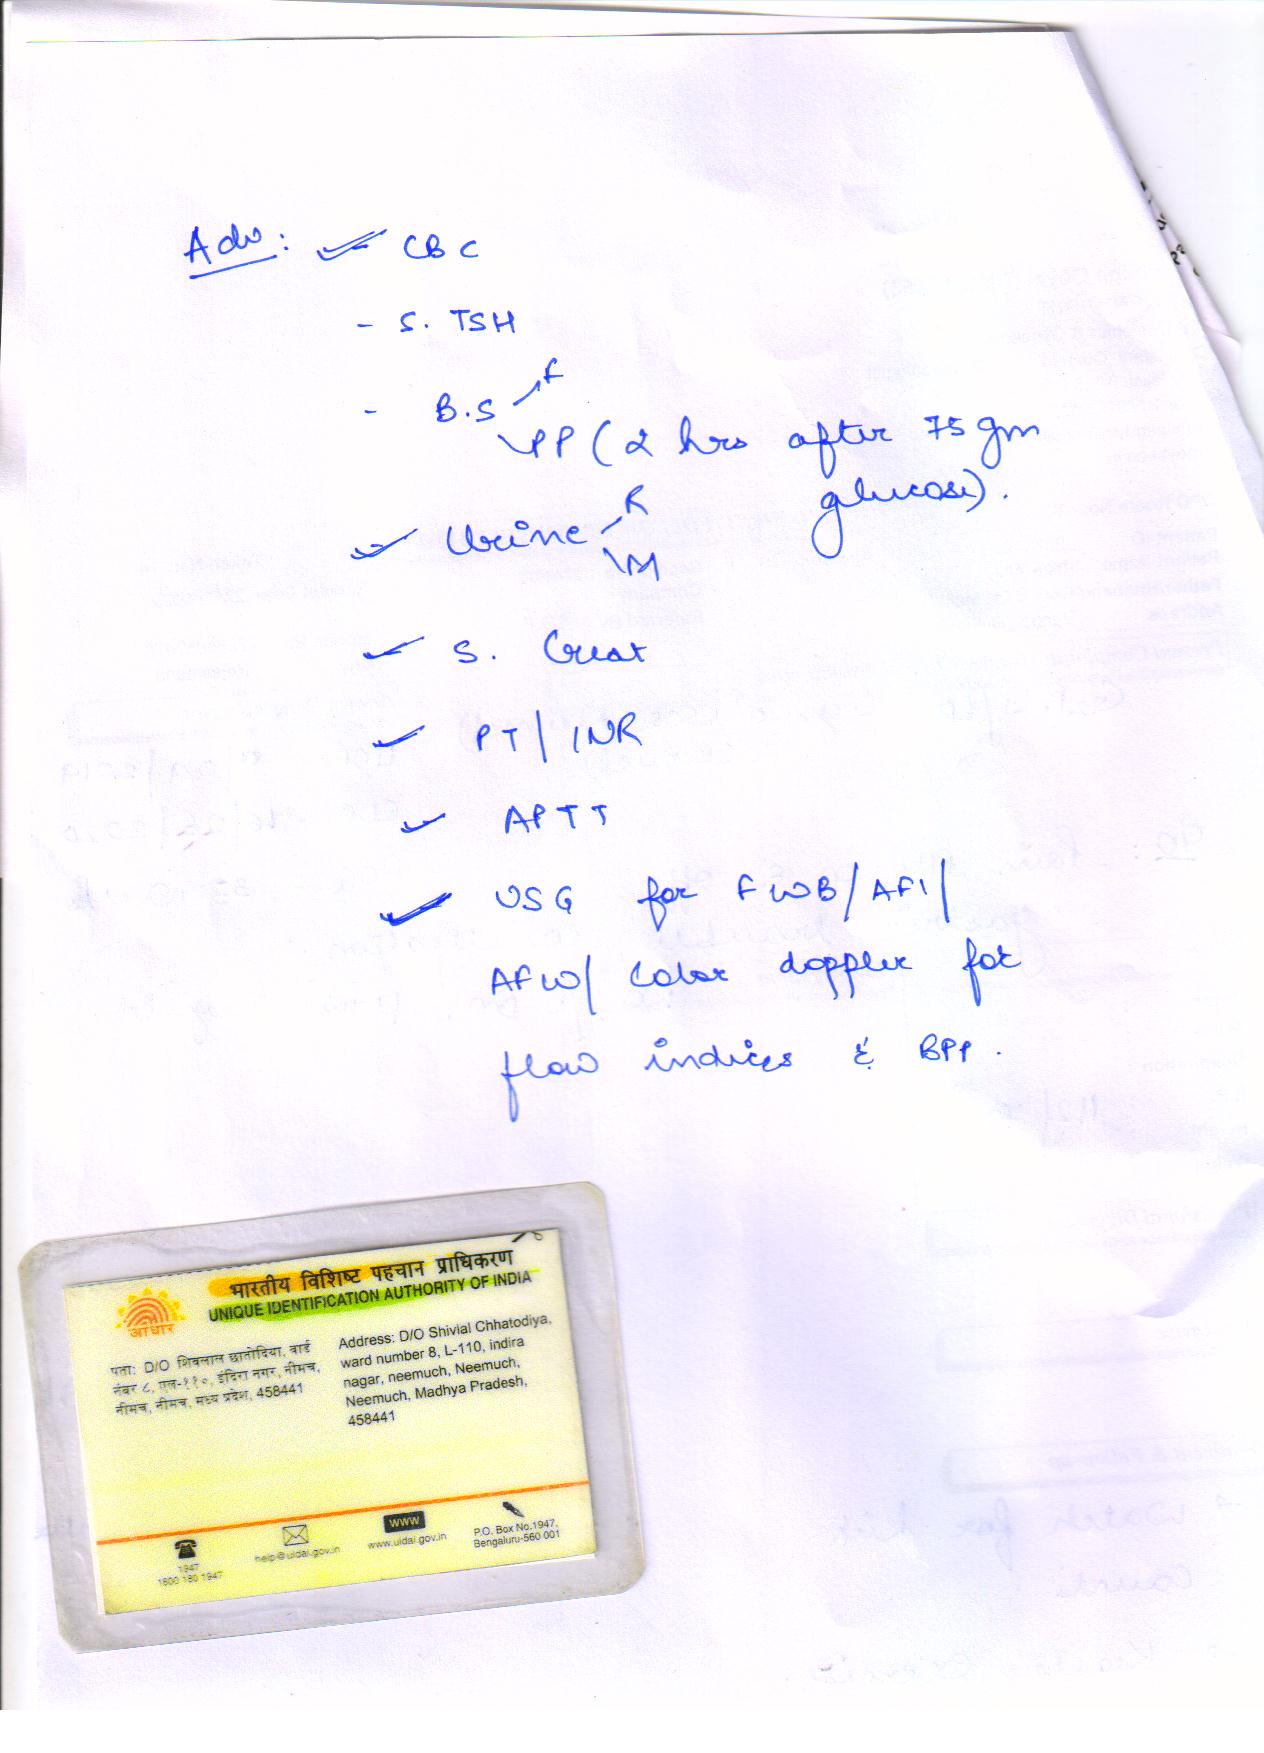 Adv: - CBC
- S. TSH
- B.S F
PP (2 hrs after 75 gm
glucose).
Urine R
M
S. Creat
PT/INR
APTT
USG for FWB/AFI/
AFW/ Color doppler for
flow indices & BPP.
भारतीय विशिष्ट पहचान प्राधिकरण
UNIQUE IDENTIFICATION AUTHORITY OF INDIA
आधार
पता: D/O शिवलाल छातोदिया, वार्ड
नंबर ८, एल-११०, इंदिरा नगर, नीमच,
नीमच, नीमच, मध्य प्रदेश, 458441
Address: D/O Shivlal Chhatodiya,
ward number 8, L-110, indira
nagar, neemuch, Neemuch,
Neemuch, Madhya Pradesh,
458441
1947
1800 180 1947
help@uidai.gov.in
WWW
www.uidai.gov.in
P.O. Box No.1947,
Bengaluru-560 001